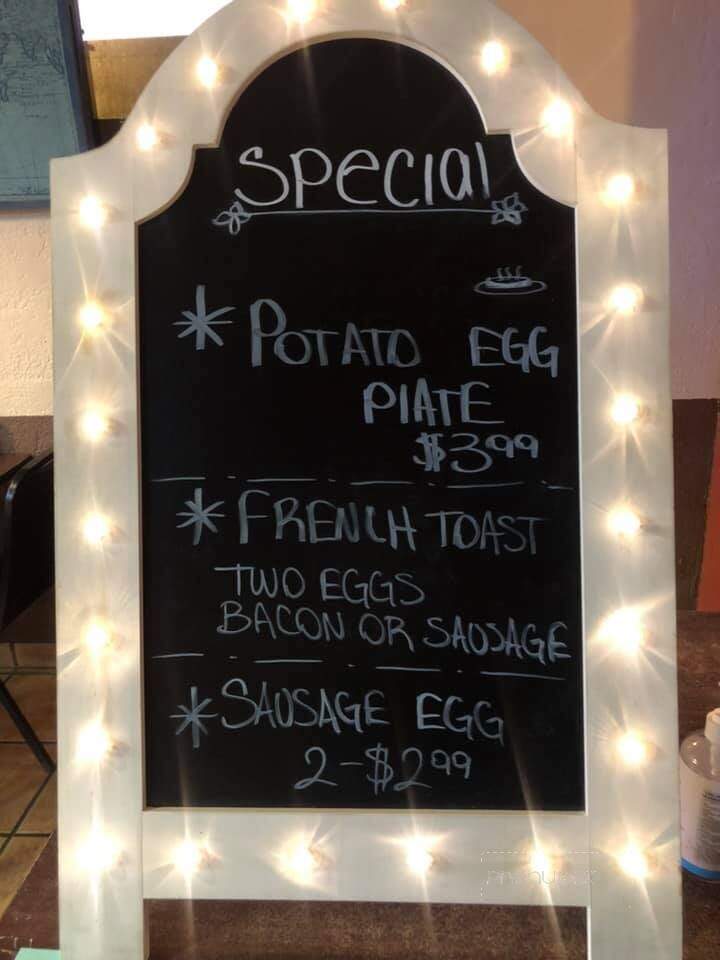 Special
* POTATO EGG
PlATE
$3.99
* FRENCH TOAST
TWO EGGS
BACON OR SAUSAGE
* SAUSAGE EGG
2-$2.99